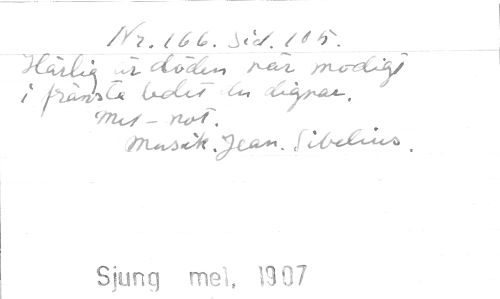 Nr. 166. Sid. 105.
Härlig är döden när modigt
i främsta ledet du dignar.
Mel - not.
Musik. Jean. Sibelius.
Sjung mel, 1907